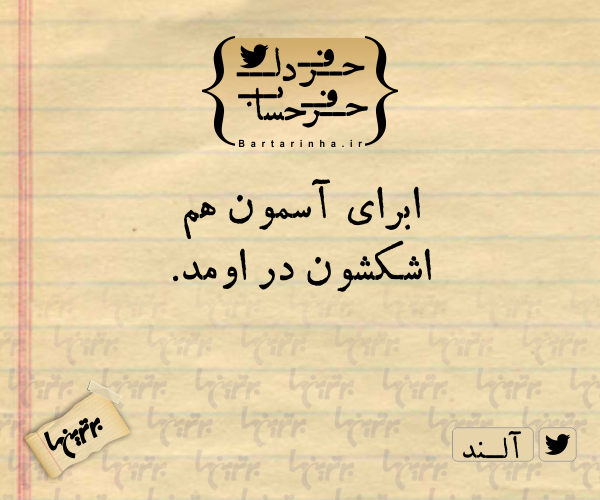 حرف دل
حرف حساب
Bartarinha.ir
ابرای آسمون هم
اشکشون در اومد.
برترینها
آلـند